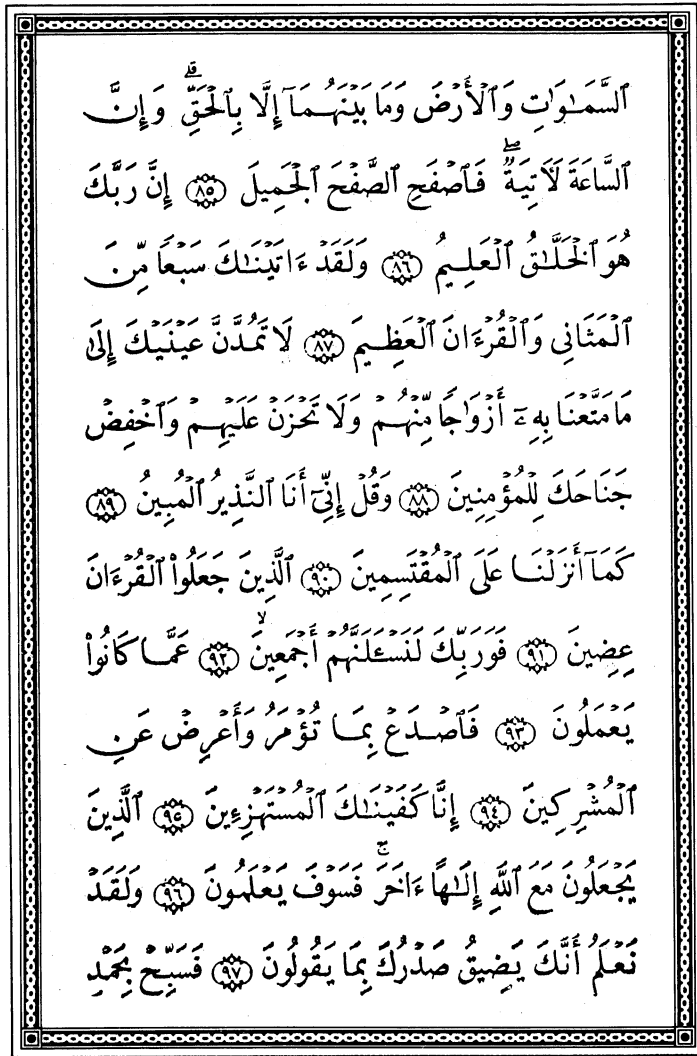 ٱلسَّمَٰوَٰتِ وَٱلْأَرْضَ وَمَا بَيْنَهُمَآ إِلَّا بِٱلْحَقِّ ۗ وَإِنَّ
ٱلسَّاعَةَ لَآتِيَةٌ ۖ فَٱصْفَحِ ٱلصَّفْحَ ٱلْجَمِيلَ ٨٥ إِنَّ رَبَّكَ
هُوَ ٱلْخَلَّٰقُ ٱلْعَلِيمُ ٨٦ وَلَقَدْ ءَاتَيْنَٰكَ سَبْعًا مِّنَ
ٱلْمَثَانِى وَٱلْقُرْءَانَ ٱلْعَظِيمَ ٨٧ لَا تَمُدَّنَّ عَيْنَيْكَ إِلَىٰ
مَا مَتَّعْنَا بِهِۦٓ أَزْوَٰجًا مِّنْهُمْ وَلَا تَحْزَنْ عَلَيْهِمْ وَٱخْفِضْ
جَنَاحَكَ لِلْمُؤْمِنِينَ ٨٨ وَقُلْ إِنِّىٓ أَنَا ٱلنَّذِيرُ ٱلْمُبِينُ ٨٩
كَمَآ أَنزَلْنَا عَلَى ٱلْمُقْتَسِمِينَ ٩٠ ٱلَّذِينَ جَعَلُوا۟ ٱلْقُرْءَانَ
عِضِينَ ٩١ فَوَرَبِّكَ لَنَسْـَٔلَنَّهُمْ أَجْمَعِينَ ۙ ٩٢ عَمَّا كَانُوا۟
يَعْمَلُونَ ٩٣ فَٱصْدَعْ بِمَا تُؤْمَرُ وَأَعْرِضْ عَنِ
ٱلْمُشْرِكِينَ ٩٤ إِنَّا كَفَيْنَٰكَ ٱلْمُسْتَهْزِءِينَ ٩٥ ٱلَّذِينَ
يَجْعَلُونَ مَعَ ٱللَّهِ إِلَٰهًا ءَاخَرَ ۚ فَسَوْفَ يَعْلَمُونَ ٩٦ وَلَقَدْ
نَعْلَمُ أَنَّكَ يَضِيقُ صَدْرُكَ بِمَا يَقُولُونَ ٩٧ فَسَبِّحْ بِحَمْدِ